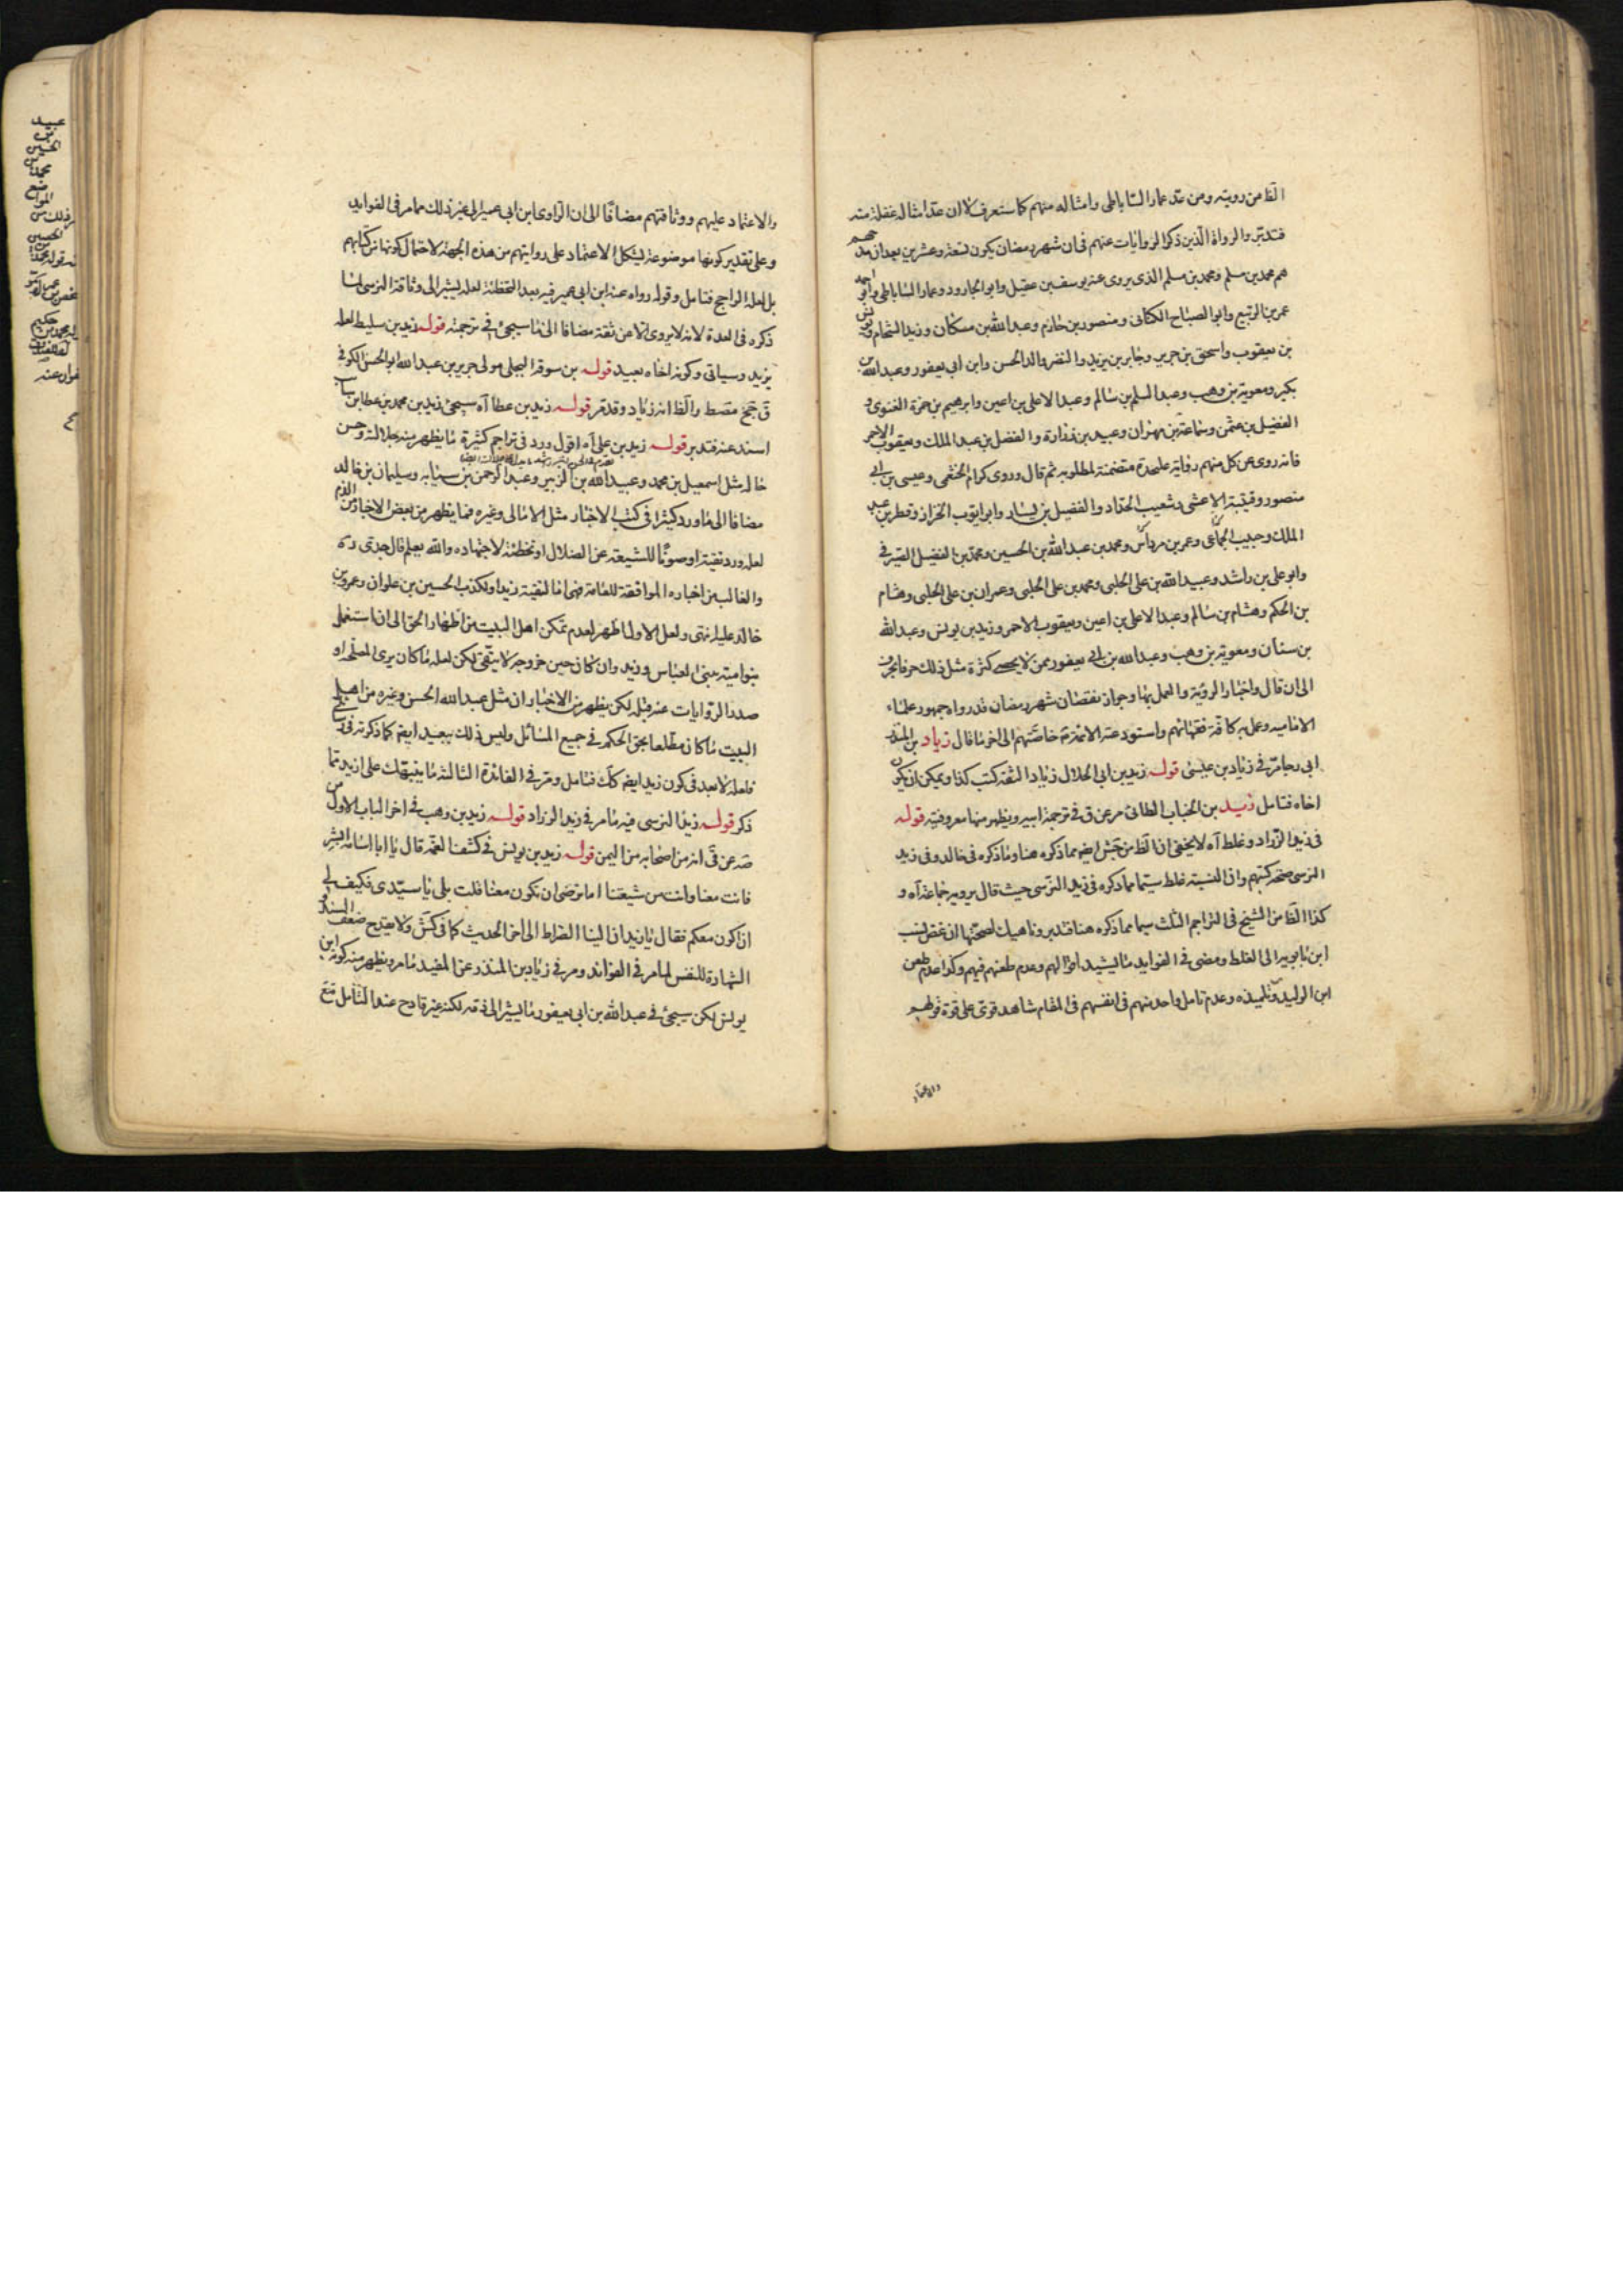 الظ من رويته ومن عد عمار الساباطى وامثاله منهم كما ستعرف كلا ان عد امثاله غفلة منه
فتدبر والرواة الذين ذكر الروايات عنهم فى ان شهر رمضان يكون تسعة وعشرين بعد ان مدحهم
هم محمد بن مسلم ومحمد بن مسلم الذى يروى عنه يوسف بن عقيل وابو الجارود وعمار الساباطى وابو احمد
عمر بن الربيع وابو الصباح الكنانى ومنصور بن حازم وعبد الله بن مسكان وزيد الشحام ويونس
بن يعقوب واسحق بن جرير وجابر بن يزيد والنضر والد الحسن وابن ابى يعفور وعبد الله بن
بكير ومعوية بن وهب وعبد السلم بن سالم وعبد الاعلى بن اعين وابرهيم بن حمزة الغنوى و
الفضيل بن عثمن وسماعة بن مهران وعبيد بن زرارة والفضل بن عبد الملك ويعقوب الاحمر
فانه روى عن كل منهم رواية عليحدة متضمنة لمطلوبه ثم قال وروى كرام الخثعمى وعيسى بن ابى
منصور وقتيبة الاعشى وشعيب الحداد والفضيل بن يسار وابو ايوب الخراز وفطر بن عبد
الملك وحبيب الجماعى وعمر بن مرداس ومحمد بن عبد الله بن الحسين ومحمد بن الفضيل الصيرفى
وابو على بن راشد وعبيد الله بن على الحلبى ومحمد بن على الحلبى وعمران بن على الحلبى وهشام
بن الحكم وهشام بن سالم وعبد الاعلى بن اعين ويعقوب الاحمر وزيد بن يونس وعبد الله
بن سنان ومعوية بن وهب وعبد الله بن ابى يعفور ممن لا يحصى كثرة مثل ذلك حرفا بحرف
الى ان قال واخبار الروية والعمل بها وجواز نقصان شهر رمضان قد رواه جمهور علماء
الامامية وعمل به كافة فقهائهم واستودعته الائمة خاصتهم الى اخر ما قال زياد بن المنذر
ابى رجا مر فى زياد بن عيسى قوله زيد بن ابى الحلال زياد الثقة كتب كذا ويمكن ان يكون
اخاه فتامل زيد بن الحباب الطائى مر عن ق فى ترجمة ابيه ويظهر منها معروفيته قوله
فى زيد الزراد وغلط آه لا يخفى ان الظ من جش ايضا مما ذكره هنا وما ذكره فى خالد وفى زيد
النرسى صحة كتبهم وان النسبة غلط سيما مما ذكره فى زيد النرسى حيث قال يرويه جماعة آه و
كذا الظ من الشيخ فى التراجم الثلث سيما مما ذكره هنا فتدبر وناهيك لصحتها ان غض نسب
ابن بابويه الى الغلط ومضى فى الفوايد ما يشيد اقوالهم وعدم طعنهم فيهم وكذا عدم طعن
ابن الوليد وتلميذه وعدم تامل واحد منهم فى انفسهم فى المقام شاهد قوى على قوة قولهم
والاعتماد
والاعتماد عليهم ووثاقتهم مضافا الى ان الراوى ابن ابى عمير الى غير ذلك مما مر فى الفوايد
وعلى تقدير كونها موضوعة يشكل الاعتماد على روايتهم من هذه الجهة لاحتمال كونها من كتابهم
بل لعله الراجح فتامل وقوله رواه عنه ابن ابى عمير فيه بعد التخطئة لعله يشير الى وثاقة النرسى لما
ذكره فى العدة لانه لا يروى الا عن ثقة مضافا الى ما سيجئ فى ترجمته قوله زيد بن سليط لعله
يزيد وسياتى وكونه اخاه بعيد قوله بن سوقة البجلى مولى جرير بن عبد الله ابو الحسن الكوفى
ق جخ والظ انه زياد وقد مر قوله زيد بن عطا آه سيجئ زيد بن محمد بن عطا بن سائب
اسند عنه فتدبر قوله زيد بن على آه اقول ورد فى تراجم كثيرة ما يظهر منه جلالته وحسن
حاله مثل اسمعيل بن محمد وعبيد الله بن الزبير وعبد الرحمن بن سيابه وسليمان بن خالد
مضافا الى ما ورد كثيرا فى كتب الاخبار مثل الامالى وغيره فما يظهر من بعض الاخبار من الذم
لعله ورد تقية او صونا للشيعة عن الضلال او تخطئة لاجتهاده والله يعلم قال جدى ره
والغالب من اخباره الموافقة للعامة فهى اما لتقية زيد او لكذب الحسين بن علوان وعمرو بن
خالد عليه انتهى ولعل الاول اظهر لعدم تمكن اهل البيت من اظهار الحق الى ان استغل
بنو امية ببنى العباس وزيد وان كان حين خروجه لا يتقى لكن لعله ما كان يرى المصلحة او
صدد الروايات عنه قبله لكن يظهر من الاخبار ان مثل عبد الله الحسن وغيره من اهل
البيت ما كان مطلعا بحق الحكم فى جميع المسائل وليس ذلك ببعيد ايضا كما ذكرته فى
فلعله لا بعد فى كون زيد ايضا كك فتامل ومر فى الفائدة الثالثة ما ينبهك على ازيد مما
ذكر قوله زيد النرسى فيه ما مر فى زيد الزراد قوله زيد بن وهب فى اخر الباب الاول من
صه عن قى انه من اصحابه من اليمن قوله زيد بن يونس فى كشف الغمة قال يا ابا اسامة ابشر
فانت معنا وانت من شيعتنا اما ترضى ان تكون معنا قلت بلى يا سيدى فكيف لى
ان اكون معكم فقال يا زيد ان الينا الصراط الى اخر الحديث كما فى كش ولا يقدح ضعف السند و
الشهادة للنفس لما مر فى الفوائد ومر فى زياد بن المنذر عن المفيد ما مر ويظهر منه كونه ابن
يونس لكن سيجئ فى عبد الله بن ابى يعفور ما يشير الى ذمه لكنه غير قادح عند التامل